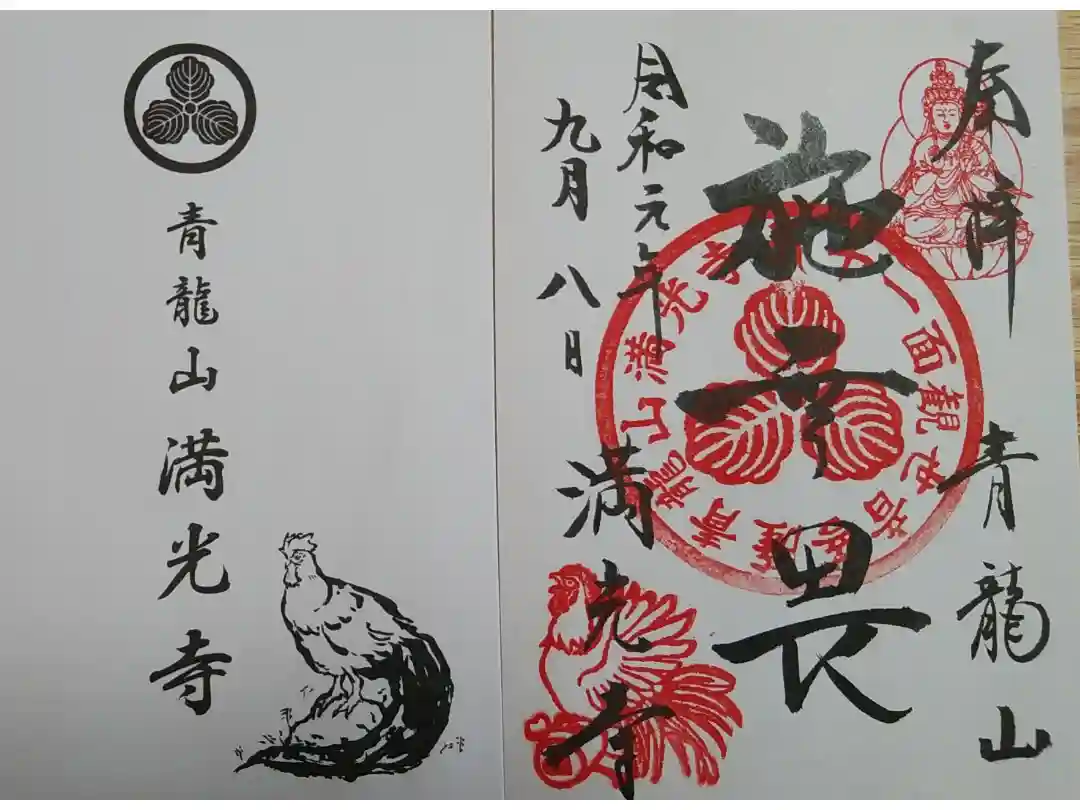 奉拝　青龍山
施無畏
令和元年
九月八日
満光寺
十一面観世音菩薩
青龍山満光寺
青龍山満光寺